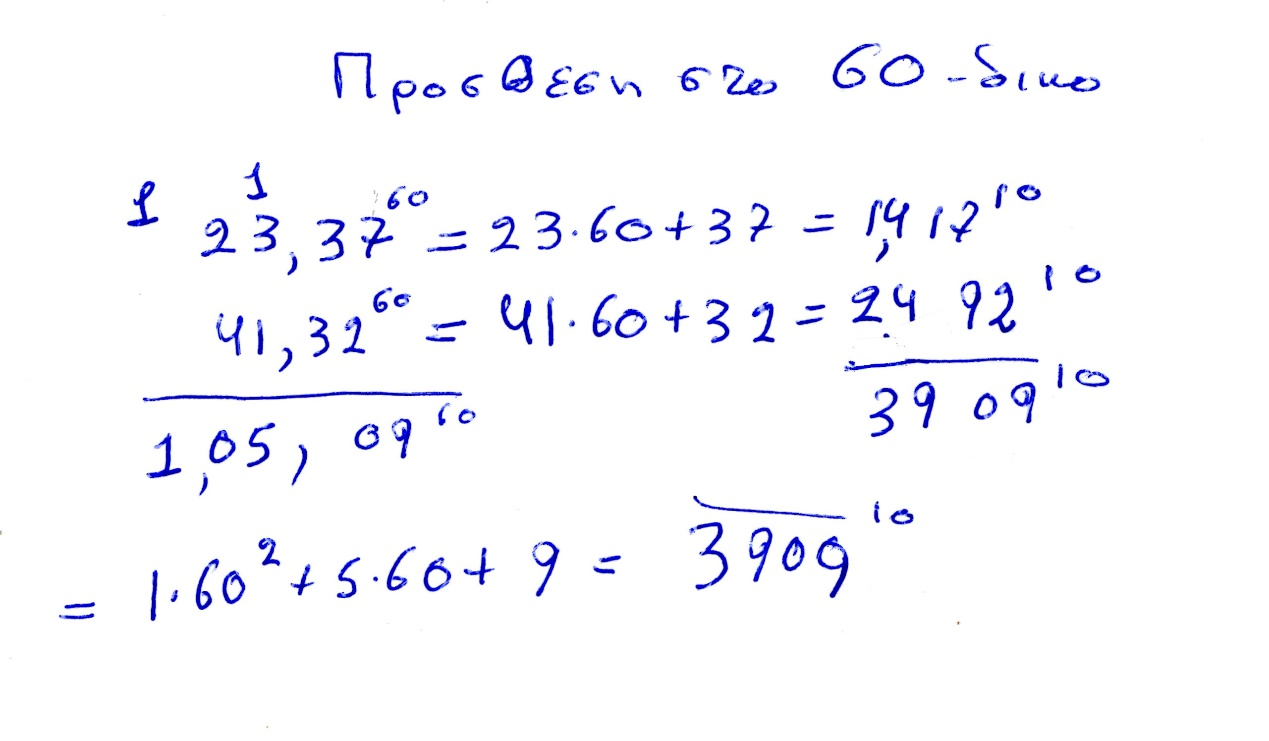 Προσθεση στο 60-δικο
1 1
23,37⁶⁰ = 23·60+37 = 1,417¹⁰
41,32⁶⁰ = 41·60+32 = 2.492¹⁰
1,05,09⁶⁰ 3909¹⁰
= 1·60²+5·60+9 = 3909¹⁰